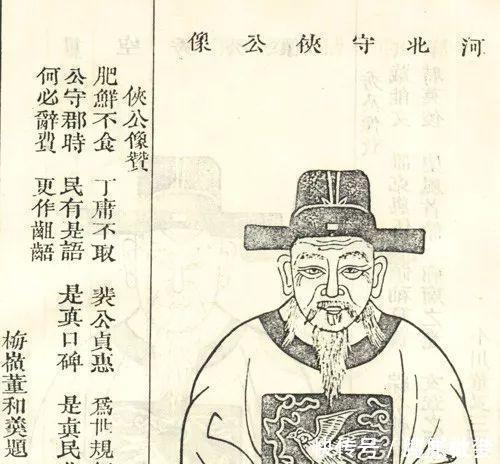 河北守俠公像
俠公像贊
肥鮮不食 丁庸不取 裴公貞惠 爲世規
公守郡時 民有是語 是眞口碑 是眞民
何必辭費 更作齟齬
梅嶺董和羹題
快传号